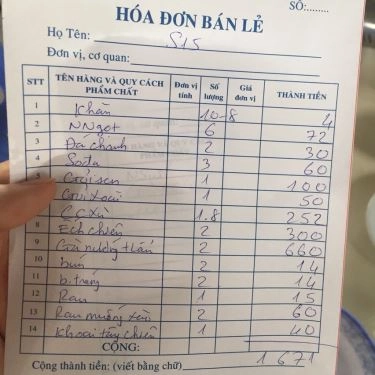 SỐ:........
HÓA ĐƠN BÁN LẺ
Họ Tên: S15
Đơn vị, cơ quan:
STT TÊN HÀNG VÀ QUY CÁCH PHẨM CHẤT Đơn vị tính Số lượng Giá đơn vị THÀNH TIỀN
1 Khăn 10-8 4
2 NNgọt 6 72
3 Đá chanh 2 30
4 Soda 3 60
5 Gỏi sen 1 100
Gỏi xoài 1 50
1.8 252
8 Ếch chiên 2 300
9 Gà nướng 2 660
10 bún 2 14
11 b.tráng 2 14
12 Rau 1 15
13 Rau muống xào 2 60
14 Khoai tây chiên 1 40
CỘNG: 1671
Cộng thành tiền: (viết bằng chữ)